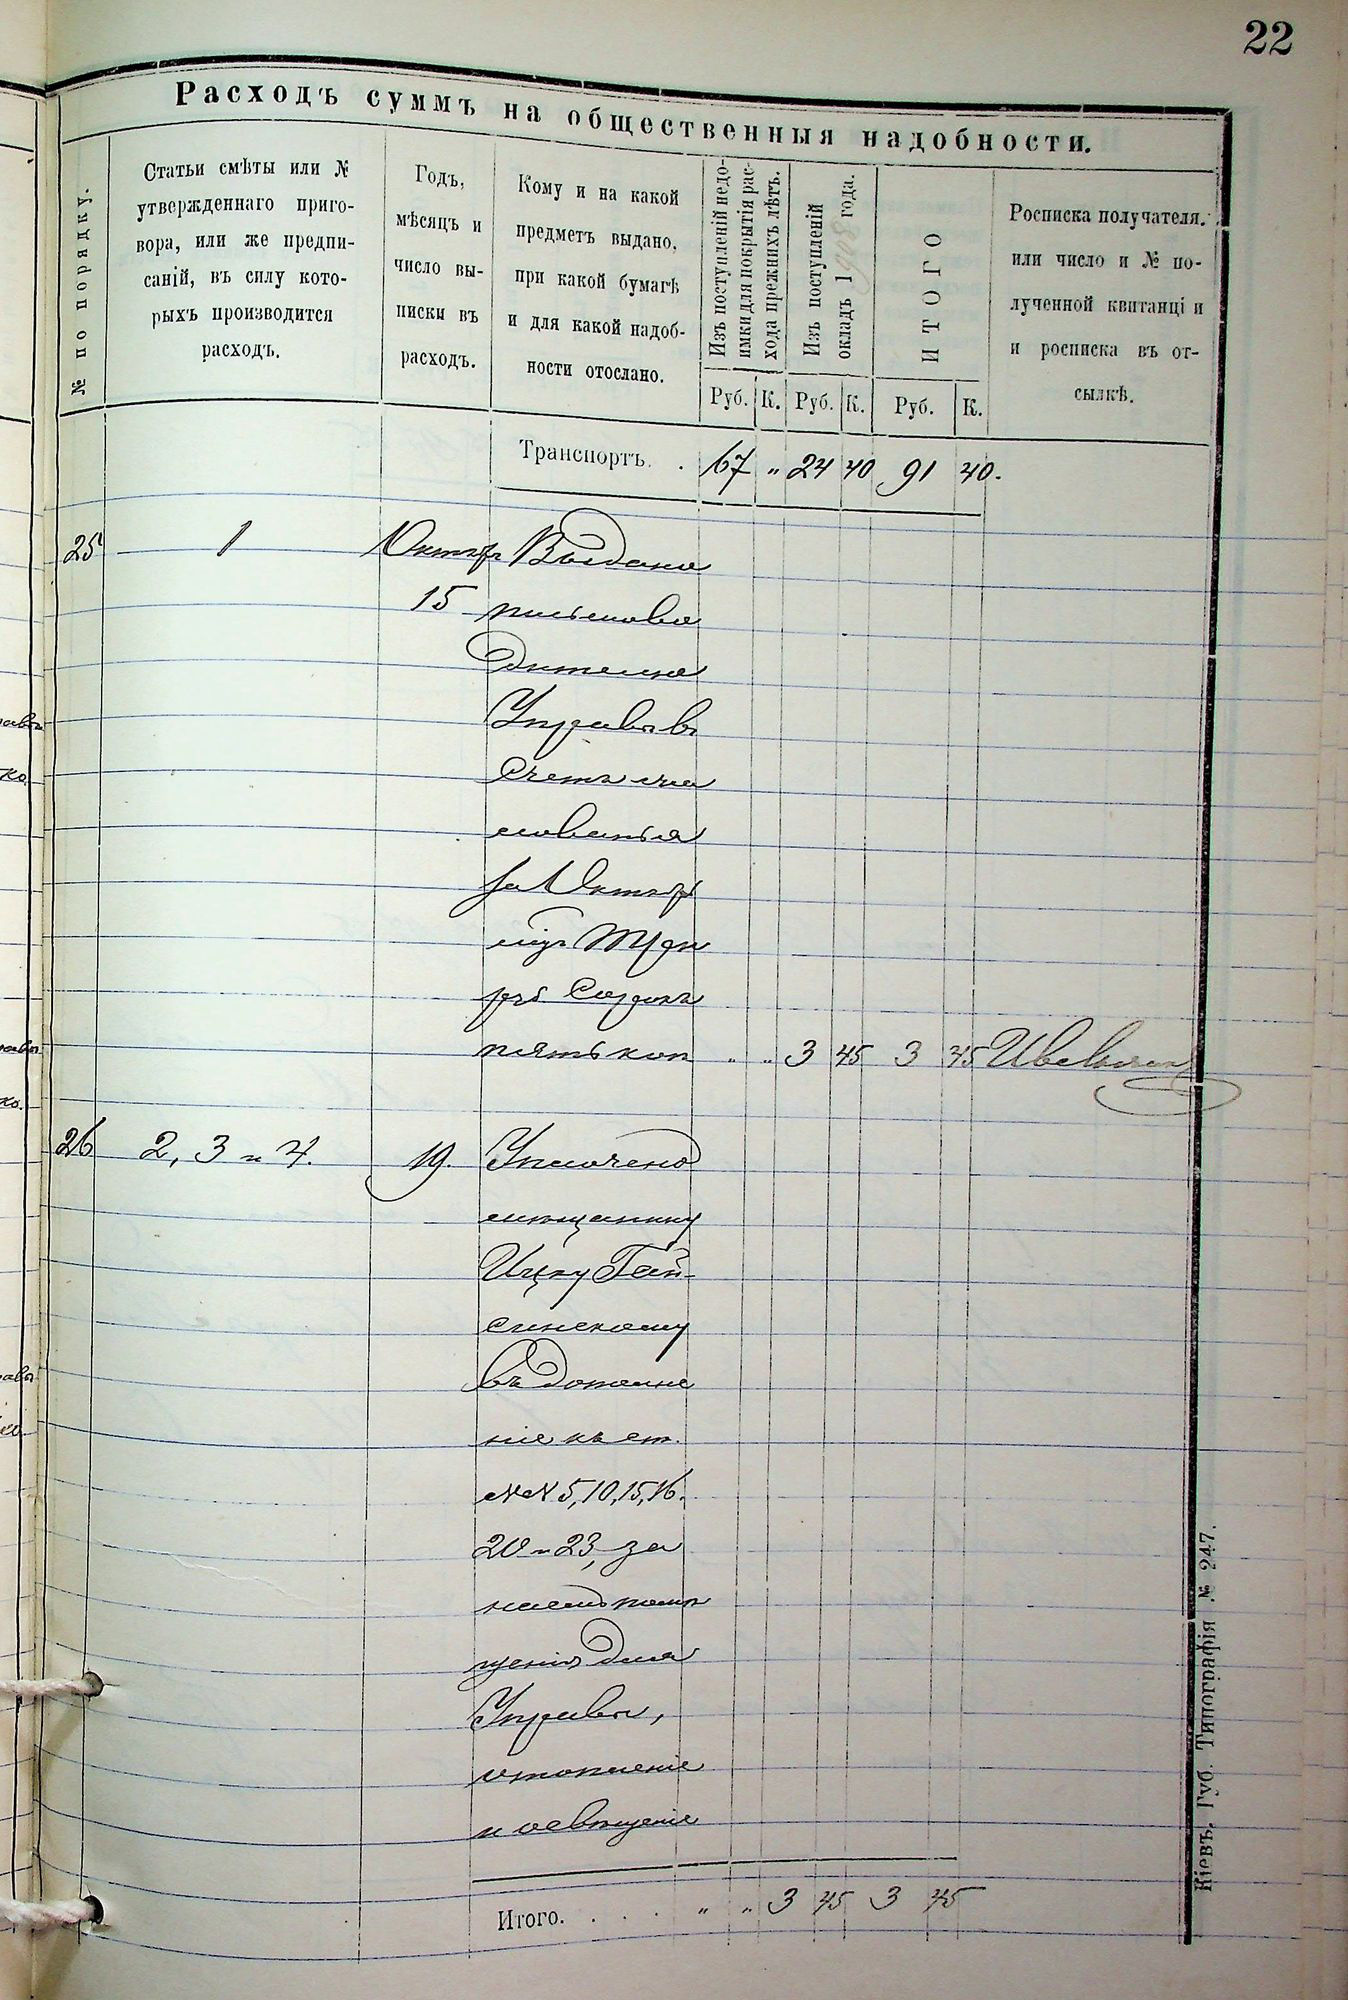 22
Расходъ суммъ на общественныя надобности.
№ по порядку.
Статьи смѣты или №
утвержденнаго приго-
вора, или же предпи-
саній, въ силу кото-
рыхъ производится
расходъ.
Годъ,
мѣсяцъ и
число вы-
писки въ
расходъ.
Кому и на какой
предметъ выдано,
при какой бумагѣ
и для какой надоб-
ности отослано.
Изъ поступленій недо-
имки для покрытія рас-
хода прежнихъ лѣтъ.
Изъ поступленій
окладъ 1908 года.
ИТОГО
Росписка получателя.
или число и № по-
лученной квитанці и
и росписка въ от-
сылкѣ.
Руб. К. Руб. К. Руб. К.
Транспортъ. . 67 „ 24 40 91 40.
25 1 Октяб Выдано
15 письмово
дителю
Управы въ
счетъ жа
лованья
за Октяб
три
руб сорокъ
пять коп „ „ 3 45 3 45
26 2, 3 и 4. 19. Уплочено
мѣщанину
Ицку Гай-
синскому
въ дополне
ніе къ ст.
№№ 5, 10, 15, 16.
20 и 23, за
наемъ помѣ
щенія для
Управы,
отопленіе
и освѣщеніе
Итого. . . . . „ „ 3 45 3 45
Кіевъ. Губ. Типографія № 247.